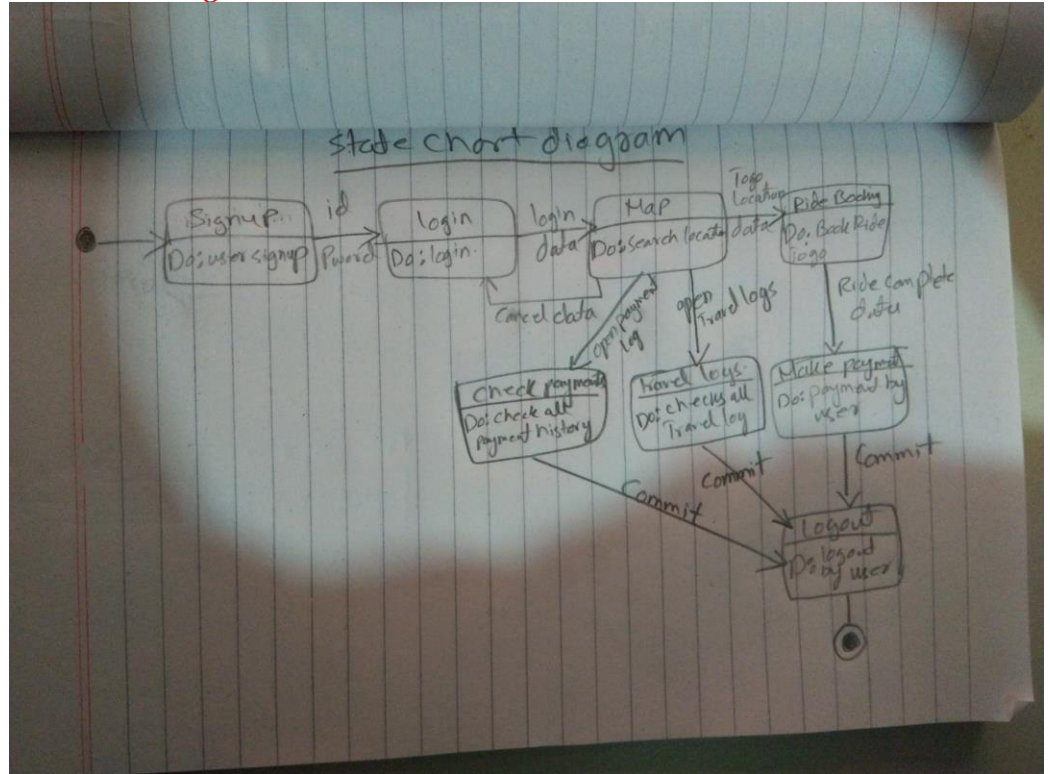 State chart diagram
Signup
Do: user signup
id
Pword
login
Do: login.
login
data
Map
Do: search locatn
Togo
Location
data
Ride Booking
Do: Book Ride
Togo
Cancel data
open payment
log
open
Travel logs
Ride complete
data
Check payments
Do: check all
payment history
Travel logs.
Do: checks all
Travel log
Make payment
Do: payment by
user
Commit
Commit
Commit
Logout
Do: logout
by user